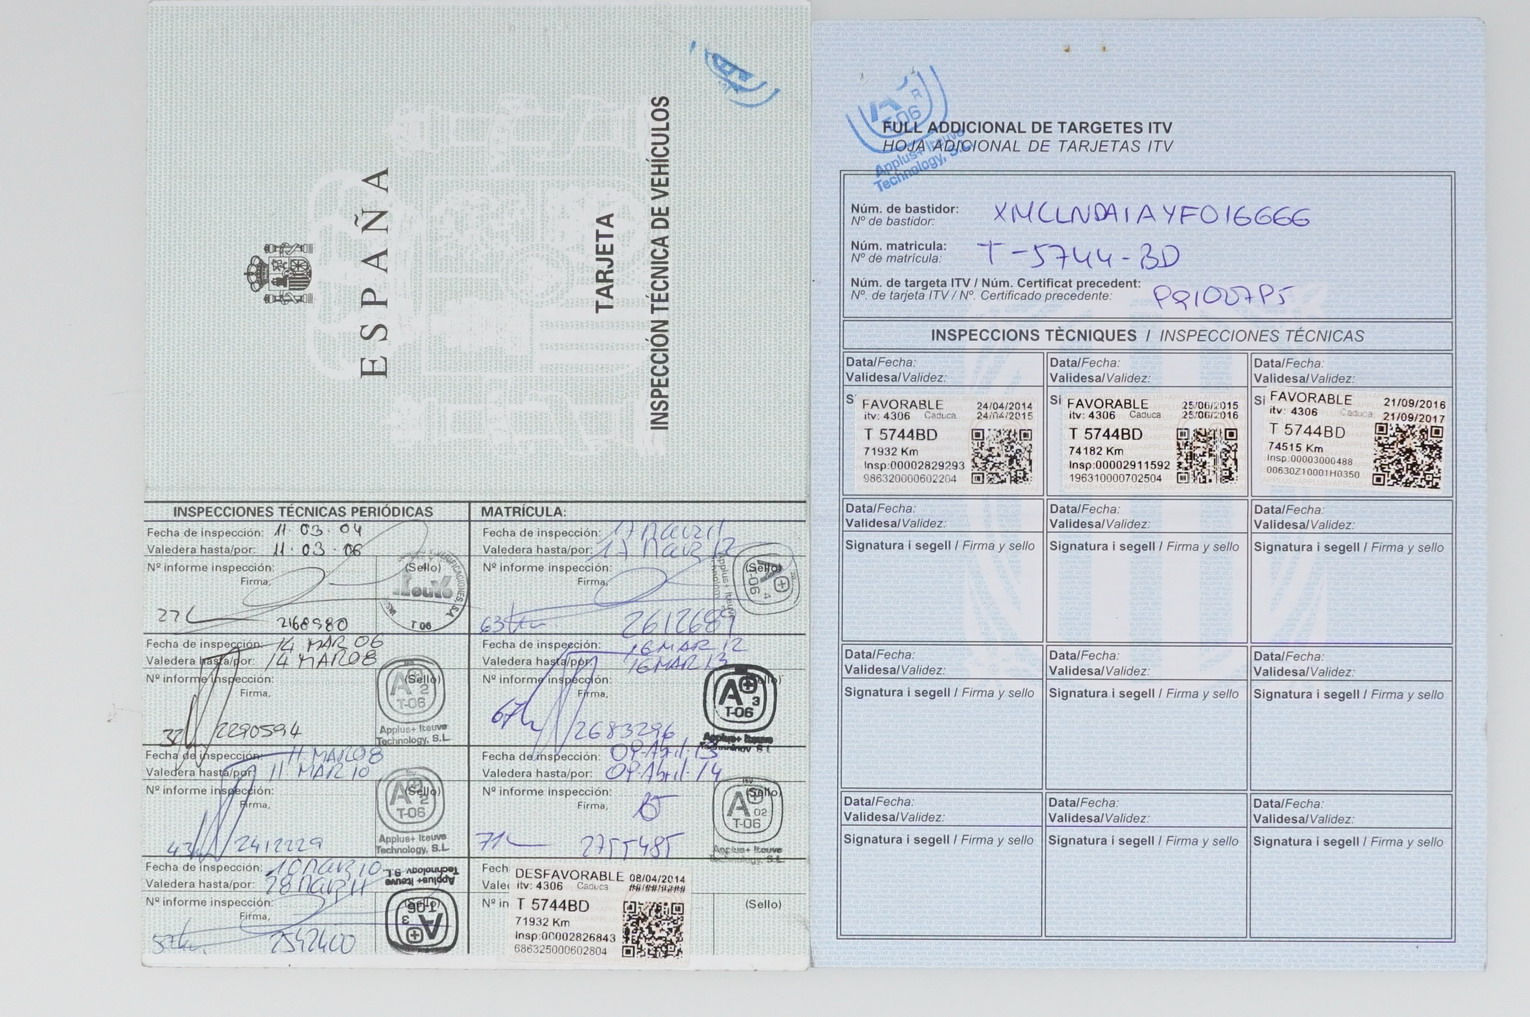 ESPAÑA
TARJETA
INSPECCIÓN TÉCNICA DE VEHÍCULOS
INSPECCIONES TÉCNICAS PERIÓDICAS
Fecha de inspección: 11·03·04
Valedera hasta/por: 11·03·06
Nº informe inspección:
(Sello)
Firma,
2168980
T 06
Fecha de inspección: 14 MAR 06
Valedera hasta/por: 14 MAR 08
Nº informe inspección:
(Sello)
Firma,
2290594
A
2
T-06
Applus+ Iteuve
Technology, S.L
Fecha de inspección: 11 MAR 08
Valedera hasta/por: 11 MAR 10
Nº informe inspección:
Firma,
2412229
A
2
T-06
Applus+ Iteuve
Technology, S.L
Fecha de inspección:
Valedera hasta/por:
Nº informe inspección:
(Sello)
Firma,
2542400
Applus+ Iteuve
Technology, S.L
A
3
T-06
MATRÍCULA:
Fecha de inspección:
Valedera hasta/por:
Nº informe inspección:
(Sello)
Firma,
2612689
Fecha de inspección: 16 MAR 12
Valedera hasta/por: 16 MAR 13
Nº informe inspección:
Firma,
2683296
A
3
T-06
Applus+ Iteuve
Fecha de inspección: 09 Abril 13
Valedera hasta/por: 09 Abril 14
Nº informe inspección:
(Sello)
Firma,
A
02
T-06
Applus+ Iteuve
Technology, S.L
Fech
Vale
Nº in
(Sello)
DESFAVORABLE 08/04/2014
itv: 4306 Caduca ##/##/####
T 5744BD
71932 Km
Insp:00002826843
686325000602804
R
T-06
Applus+ Iteuve
Technology, S.L
FULL ADDICIONAL DE TARGETES ITV
HOJA ADICIONAL DE TARJETAS ITV
Núm. de bastidor: XMCLNDA1AYF016666
Nº de bastidor:
Núm. matricula: T-5744-BD
Nº de matrícula:
Núm. de targeta ITV / Núm. Certificat precedent:
Nº. de tarjeta ITV / Nº. Certificado precedente:
INSPECCIONS TÈCNIQUES / INSPECCIONES TÉCNICAS
Data/Fecha: Data/Fecha: Data/Fecha:
Validesa/Validez: Validesa/Validez: Validesa/Validez:
S
FAVORABLE 24/04/2014
itv: 4306 Caduca 24/04/2015
T 5744BD
71932 Km
Insp:00002829293
986320000602204
Si
FAVORABLE 25/06/2015
itv: 4306 Caduca 25/06/2016
T 5744BD
74182 Km
Insp:00002911592
196310000702504
Si
FAVORABLE 21/09/2016
itv: 4306 Caduca 21/09/2017
T 5744BD
74515 Km
Insp:00003000488
00630Z10001H0350
Data/Fecha: Data/Fecha: Data/Fecha:
Validesa/Validez: Validesa/Validez: Validesa/Validez:
Signatura i segell / Firma y sello Signatura i segell / Firma y sello Signatura i segell / Firma y sello
Data/Fecha: Data/Fecha: Data/Fecha:
Validesa/Validez: Validesa/Validez: Validesa/Validez:
Signatura i segell / Firma y sello Signatura i segell / Firma y sello Signatura i segell / Firma y sello
Data/Fecha: Data/Fecha: Data/Fecha:
Validesa/Validez: Validesa/Validez: Validesa/Validez:
Signatura i segell / Firma y sello Signatura i segell / Firma y sello Signatura i segell / Firma y sello